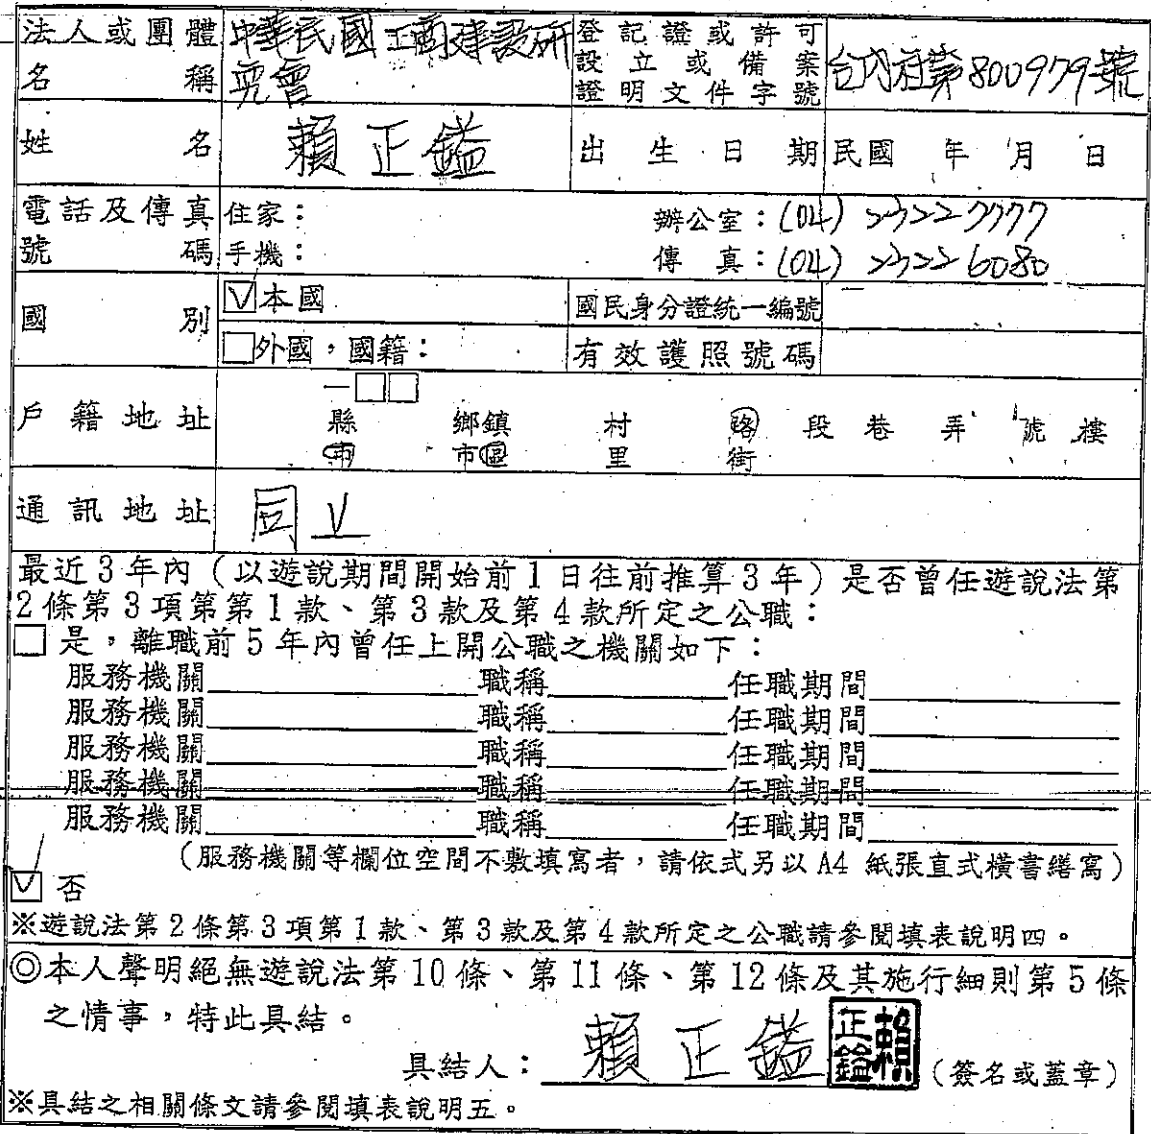 法人或團體名稱 中華民國工商建設研究會 登記證或許可設立或備案證明文件字號 台內社第800979號
姓名 賴正鎰 出生日期 民國 年 月 日
電話及傳真號碼 住家： 辦公室：(04) 23227777
手機： 傳真：(04) 23226080
國別 ☑本國 國民身分證統一編號
□外國，國籍： 有效護照號碼
戶籍地址 －□□
縣 鄉鎮 村 路 段 巷 弄 號 樓
市 市區 里 街
通訊地址 同上
最近3年內（以遊說期間開始前1日往前推算3年）是否曾任遊說法第
2條第3項第第1款、第3款及第4款所定之公職：
□是，離職前5年內曾任上開公職之機關如下：
服務機關 職稱 任職期間
服務機關 職稱 任職期間
服務機關 職稱 任職期間
服務機關 職稱 任職期間
服務機關 職稱 任職期間
（服務機關等欄位空間不敷填寫者，請依式另以A4 紙張直式橫書繕寫）
☑否
※遊說法第2條第3項第1款、第3款及第4款所定之公職請參閱填表說明四。
◎本人聲明絕無遊說法第10條、第11條、第12條及其施行細則第5條
之情事，特此具結。
具結人：賴正鎰 賴正鎰（簽名或蓋章）
※具結之相關條文請參閱填表說明五。